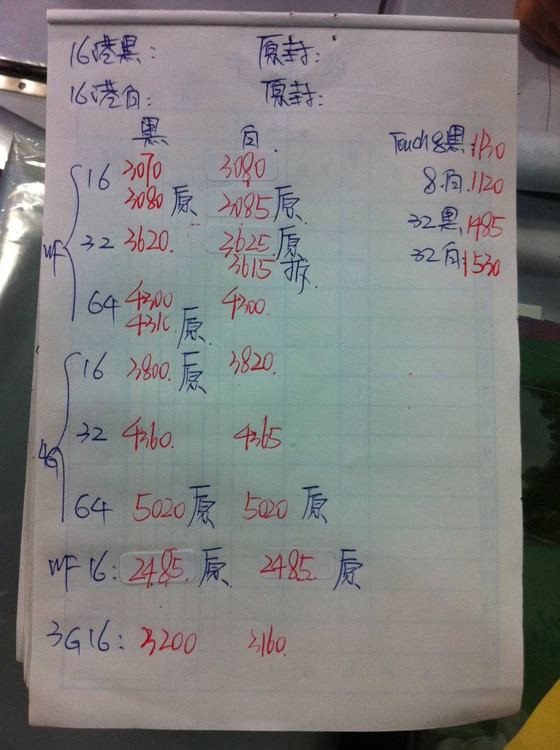 16港黑: 原封:
16港白: 原封:
黑 白.
16 3070 3080
3080 原 3085 原.
WF 32 3620. 3625. 原
3615 拆.
64 4300 4300.
4310. 原
16 3800. 原 3820.
4G 32 4360. 4365
64 5020 原 5020 原
WF 16: 2485. 原 2485. 原
3G 16: 3200 3160.
Touch 8黑 1130
8.白. 1120
32黑. 1485
32白 1530